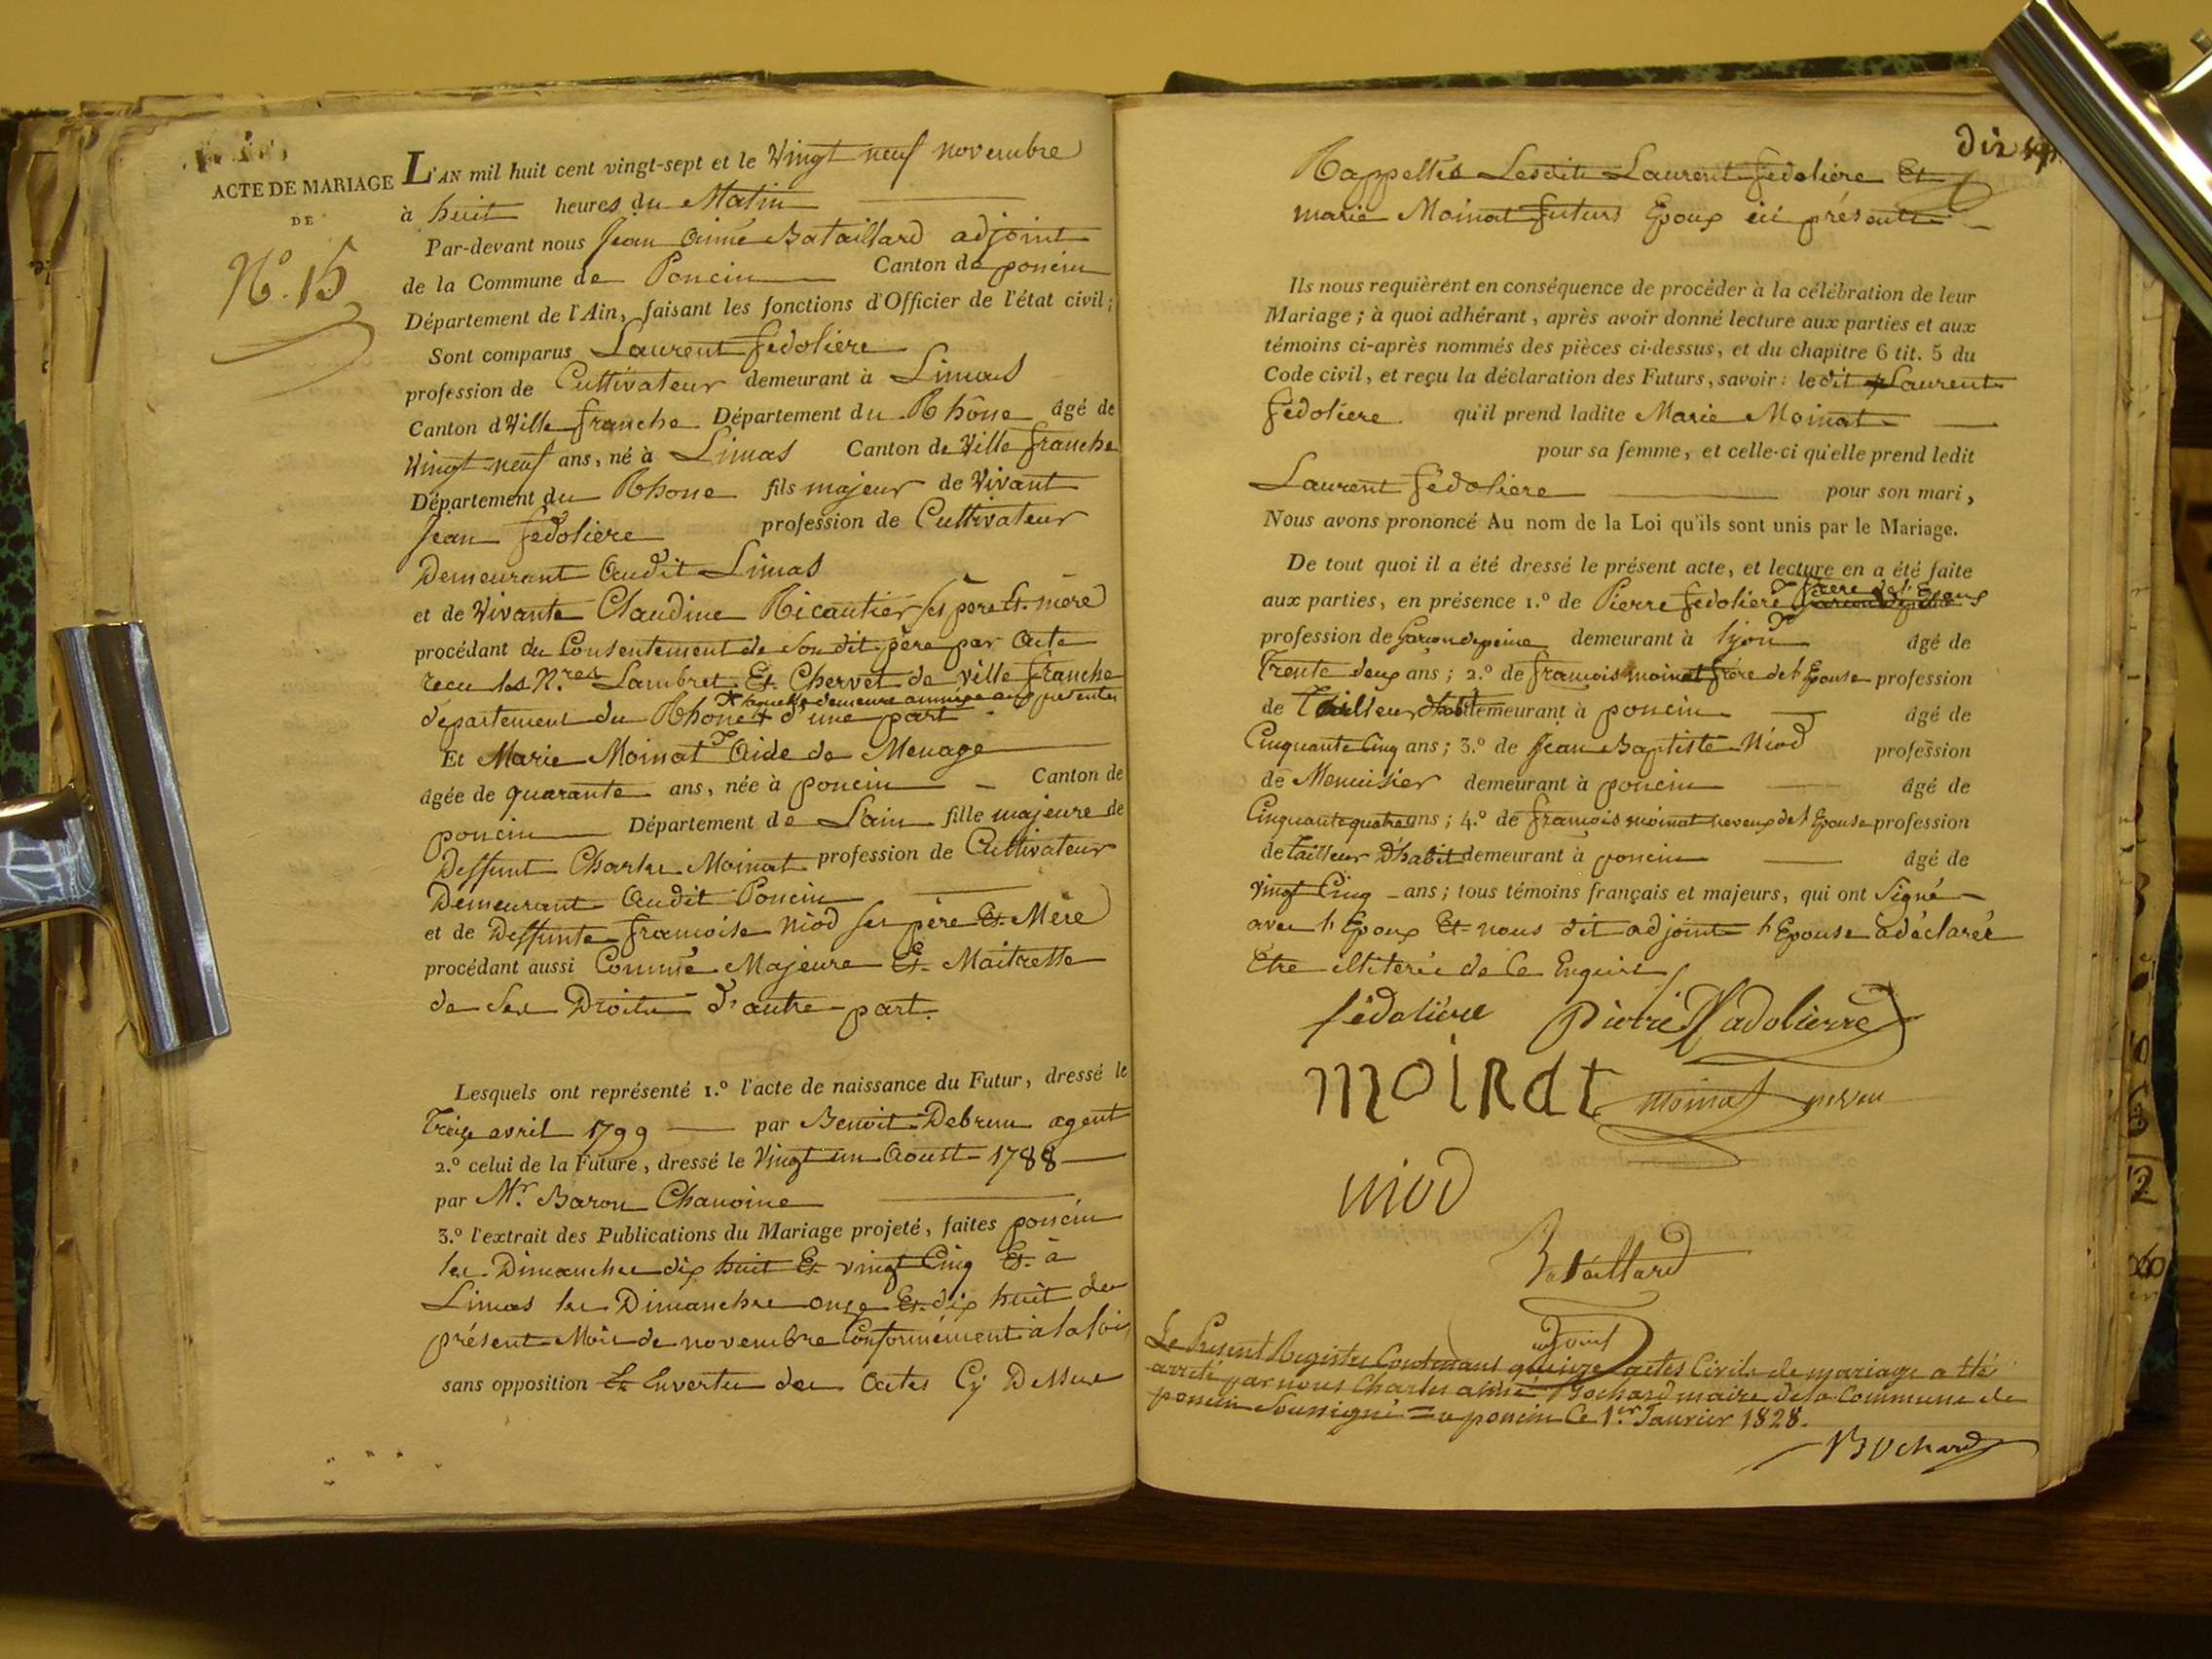 ACTE DE MARIAGE
DE
N.º 15
L'AN mil huit cent vingt-sept et le Vingt neuf novembre
à huit heures du Matin
Par-devant nous Jean Aimé Bataillard adjoint
de la Commune de Poncin Canton de poncin
Département de l'Ain, faisant les fonctions d'Officier de l'état civil;
Sont comparus Laurent fédolière
profession de Cultivateur demeurant à Limas
Canton d Ville franche Département du Rhône âgé de
Vingt neuf ans, né à Limas Canton de Ville franche
Département du Rhone fils majeur de Vivant
Jean fédolière profession de Cultivateur
Demeurant Audit Limas
et de Vivante Claudine Ricautier ses père Et mère
procédant du Consentement de Son dit père par Acte
recu les N.res Lambret Et Chervet de ville franche
département du Rhone + d'une part + laquelle demeure annexée aux présentes
Et Marie Moinat Aide de Menage
âgée de quarante ans, née à poncin Canton de
poncin Département de L'ain fille majeure de
Deffunt Charles Moinat profession de Cultivateur
Demeurant Audit Poncin
et de Deffunte francoise Niod ses père Et Mère
procédant aussi Comme Majeure Et Maitresse
de Ses Droits d'autre part.
Lesquels ont représenté 1.º l'acte de naissance du Futur, dressé le
Treize avril 1799 par Benoit Debrun agent
2.º celui de la Future, dressé le Vingt un Aoust 1788
par Mr. Baron Chanoine
3.º l'extrait des Publications du Mariage projeté, faites poncin
les Dimanches dix huit Et vingt Cinq Et à
Limas les Dimanches onze Et dix huit du
présent Mois de novembre Conformément à la loi
sans opposition Et Envertu des Actes Cy Dessus
Dix sept
Rappellés Lesdits Laurent fedolière Et
marie Moinat futurs Epoux ici présents
Ils nous requièrent en conséquence de procéder à la célébration de leur
Mariage; à quoi adhérant, après avoir donné lecture aux parties et aux
témoins ci-après nommés des pièces ci-dessus, et du chapitre 6 tit. 5 du
Code civil, et reçu la déclaration des Futurs, savoir: le dit Laurent
fédolière qu'il prend ladite Marie Moinat
pour sa femme, et celle-ci qu'elle prend ledit
Laurent fédolière pour son mari,
Nous avons prononcé Au nom de la Loi qu'ils sont unis par le Mariage.
De tout quoi il a été dressé le présent acte, et lecture en a été faite
aux parties, en présence 1.º de Pierre fedolière frere de l'Epoux
profession de Garcon de peine demeurant à lyon âgé de
Trente deux ans; 2.º de francois moinat frère de l'Epouse profession
de Tailleur d'habit demeurant à poncin âgé de
Cinquante Cinq ans; 3.º de Jean Baptiste Niod profession
de Menuisier demeurant à poncin âgé de
Cinquante quatre ans; 4.º de francois moinat neveux de l'Epouse profession
de tailleur D'habit demeurant à poncin âgé de
vingt Cinq ans; tous témoins français et majeurs, qui ont Signé
avec l'Epoux Et nous dit adjoint l'Epouse a déclaré
Etre illiterée de Ce Enquise
fédolière Pierre fadolierre
moinat moinat neveu
niod
Bataillard
adjoint
Le Présent Registre Contenant quinze actes Civils de mariage a été
arreté par nous Charles aimé Bochard maire de la Commune de
poncin Soussigné = a poncin Ce 1.er Janvier 1828.
Bochard